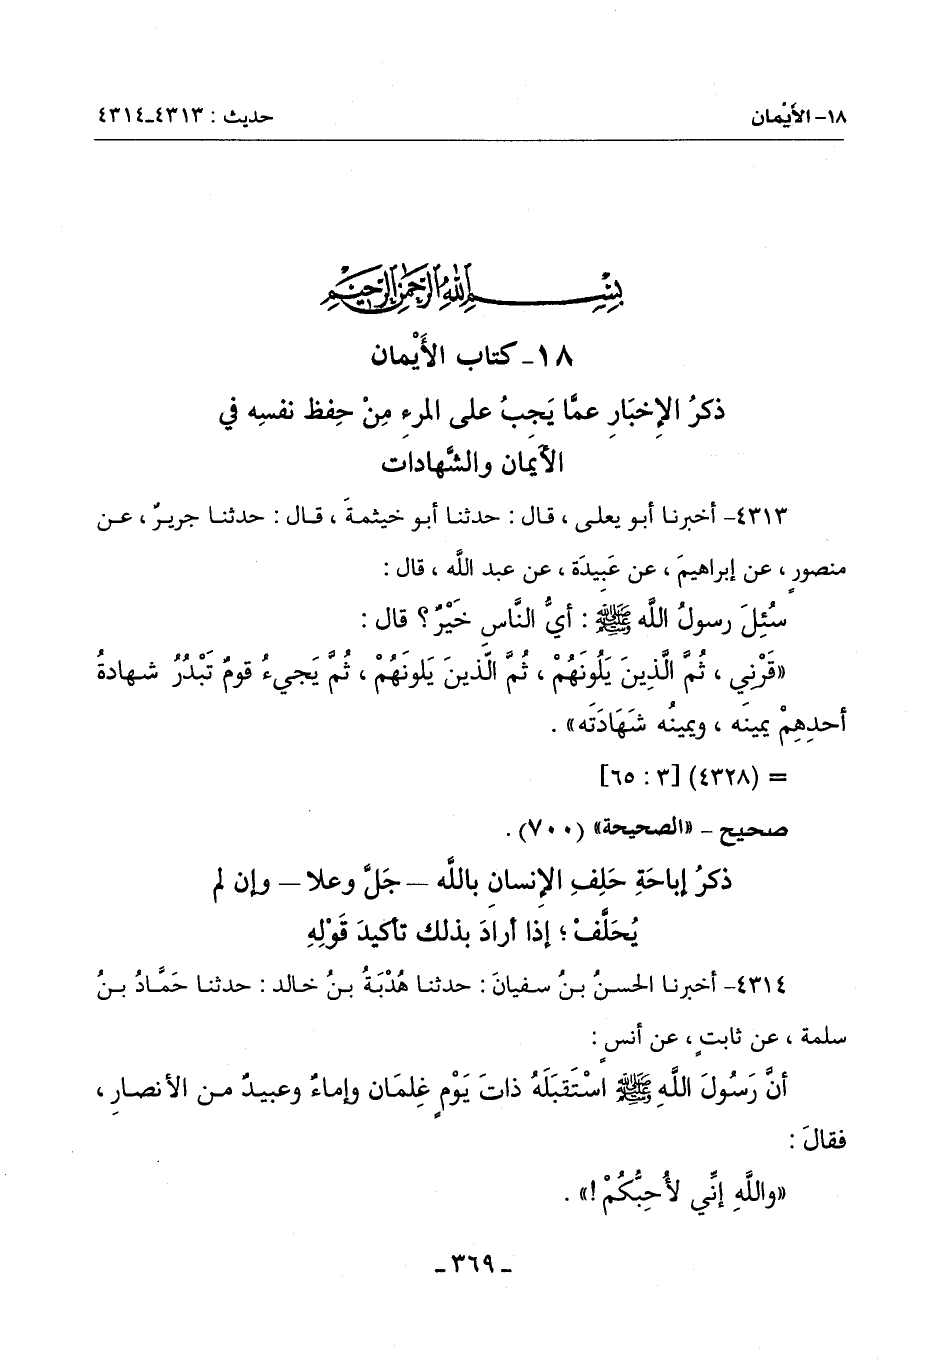 ١٨- الأَيْمان
حديث : ٤٣١٣ـ٤٣١٤
بسم الله الرحمن الرحيم
١٨ـ كتاب الأَيْمان
ذكرُ الإِخبَارِ عمَّا يَجبُ على المرءِ مِنْ حِفظ نفسِه في
الأَيمان والشَّهادات
٤٣١٣- أخبرنا أبو يعلى ، قال : حدثنا أبو خيثمةَ ، قال : حدثنا جريرٌ ، عن
منصورٍ ، عن إبراهيمَ ، عن عَبِيدَة ، عن عبد اللَّه ، قال :
سُئِلَ رسولُ اللَّه ﷺ : أيُّ النَّاسِ خَيْرٌ ؟ قال :
«قَرْنِي ، ثُمَّ الَّذِينَ يَلُونَهُمْ ، ثُمَّ الّذينَ يَلونَهُمْ ، ثُمَّ يَجيءُ قومٌ تَبْدُرُ شهادةُ
أحدِهِمْ يمينَه ، ويمينُه شَهَادَتَه» .
= (٤٣٢٨) [٣ : ٦٥]
صحيح ـ «الصحيحة» (٧٠٠) .
ذكرُ إباحَةِ حَلِفِ الإنسانِ باللَّه – جَلَّ وعلا – وإن لم
يُحَلَّفْ ؛ إذا أرادَ بذلك تأكيدَ قَوْلِهِ
٤٣١٤- أخبرنا الحسنُ بنُ سفيانَ : حدثنا هُدْبَةُ بنُ خالد : حدثنا حَمَّادُ بنُ
سلمة ، عن ثابتٍ ، عن أنسٍ :
أنَّ رَسُولَ اللَّهِ ﷺ اسْتَقبَلَهُ ذاتَ يَوْمٍ غِلمَان وإماءٌ وعبيدٌ من الأنصارِ ،
فقالَ :
«واللَّهِ إنِّي لأُحِبُّكُمْ !» .
ـ ٣٦٩ ـ